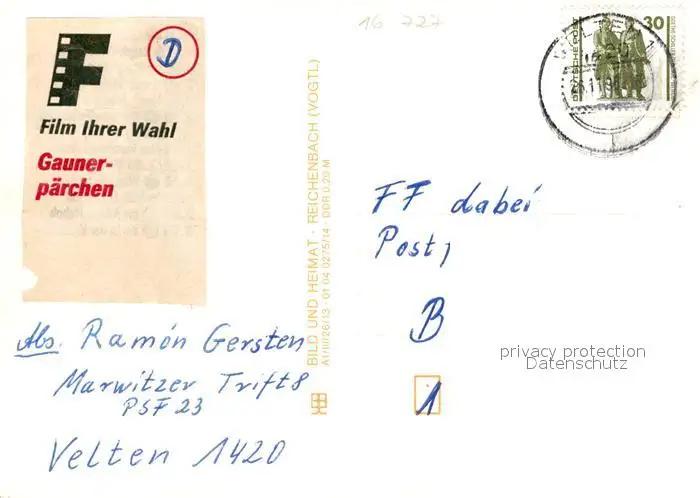 16 727
D
F
Film Ihrer Wahl
Gauner-
pärchen
30
DEUTSCHE POST
VELTEN 1
1420
BILD UND HEIMAT · REICHENBACH (VOGTL)
A1/III/26/13 · 01 04 0275/14 · DDR 0,20 M
FF dabei
Post,
B
1
privacy protection
Datenschutz
Abs. Ramón Gersten
Marwitzer Trift 8
PSF 23
Velten 1420